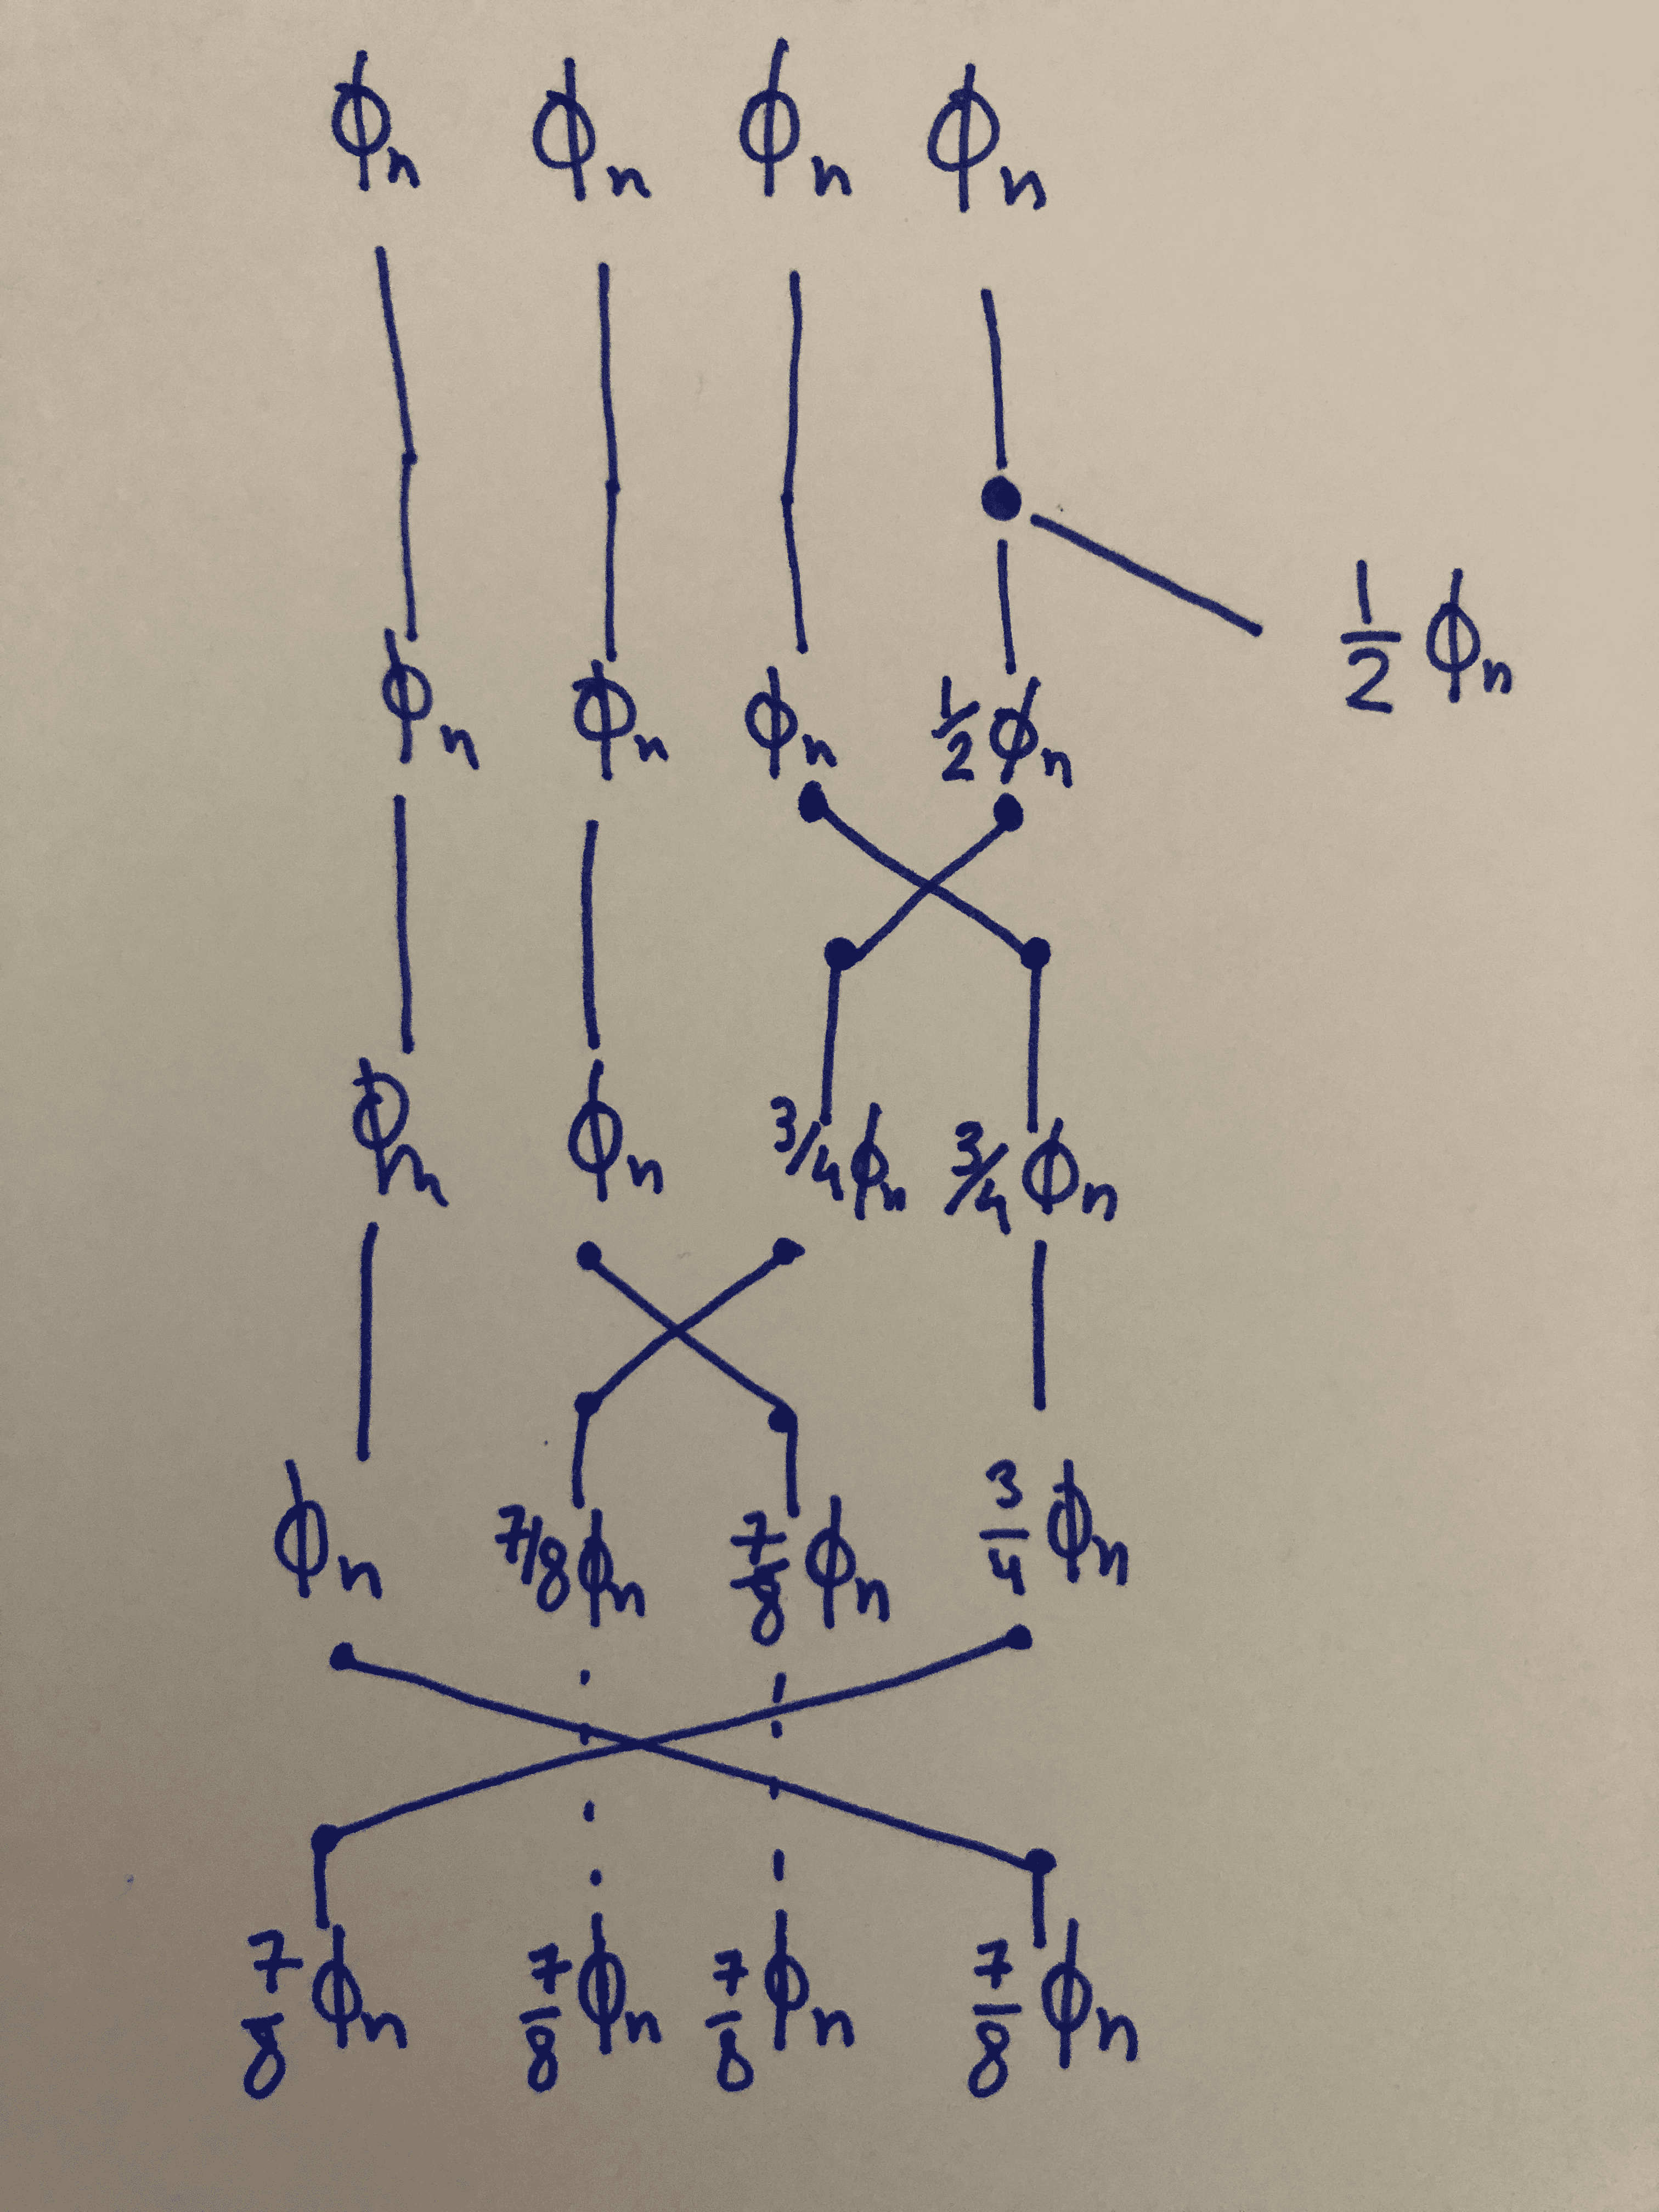 ϕn ϕn ϕn ϕn
1/2 ϕn
ϕn ϕn ϕn 1/2 ϕn
ϕn ϕn 3/4 ϕn 3/4 ϕn
ϕn 7/8 ϕn 7/8 ϕn 3/4 ϕn
7/8 ϕn 7/8 ϕn 7/8 ϕn 7/8 ϕn